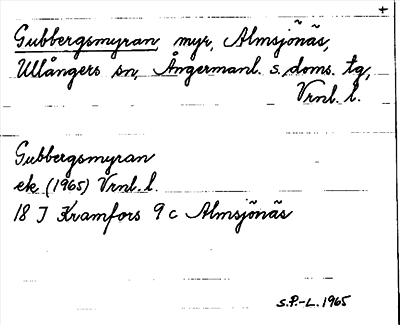 +
Gubbergsmyran, myr, Almsjönäs,
Ullångers sn, Ångermanl. s. doms. tg,
Vrnl. l.
Gubbergsmyran
ek. (1965) Vrnl. l.
18 J Kramfors 9 c Almsjönäs
S.P.-L. 1965